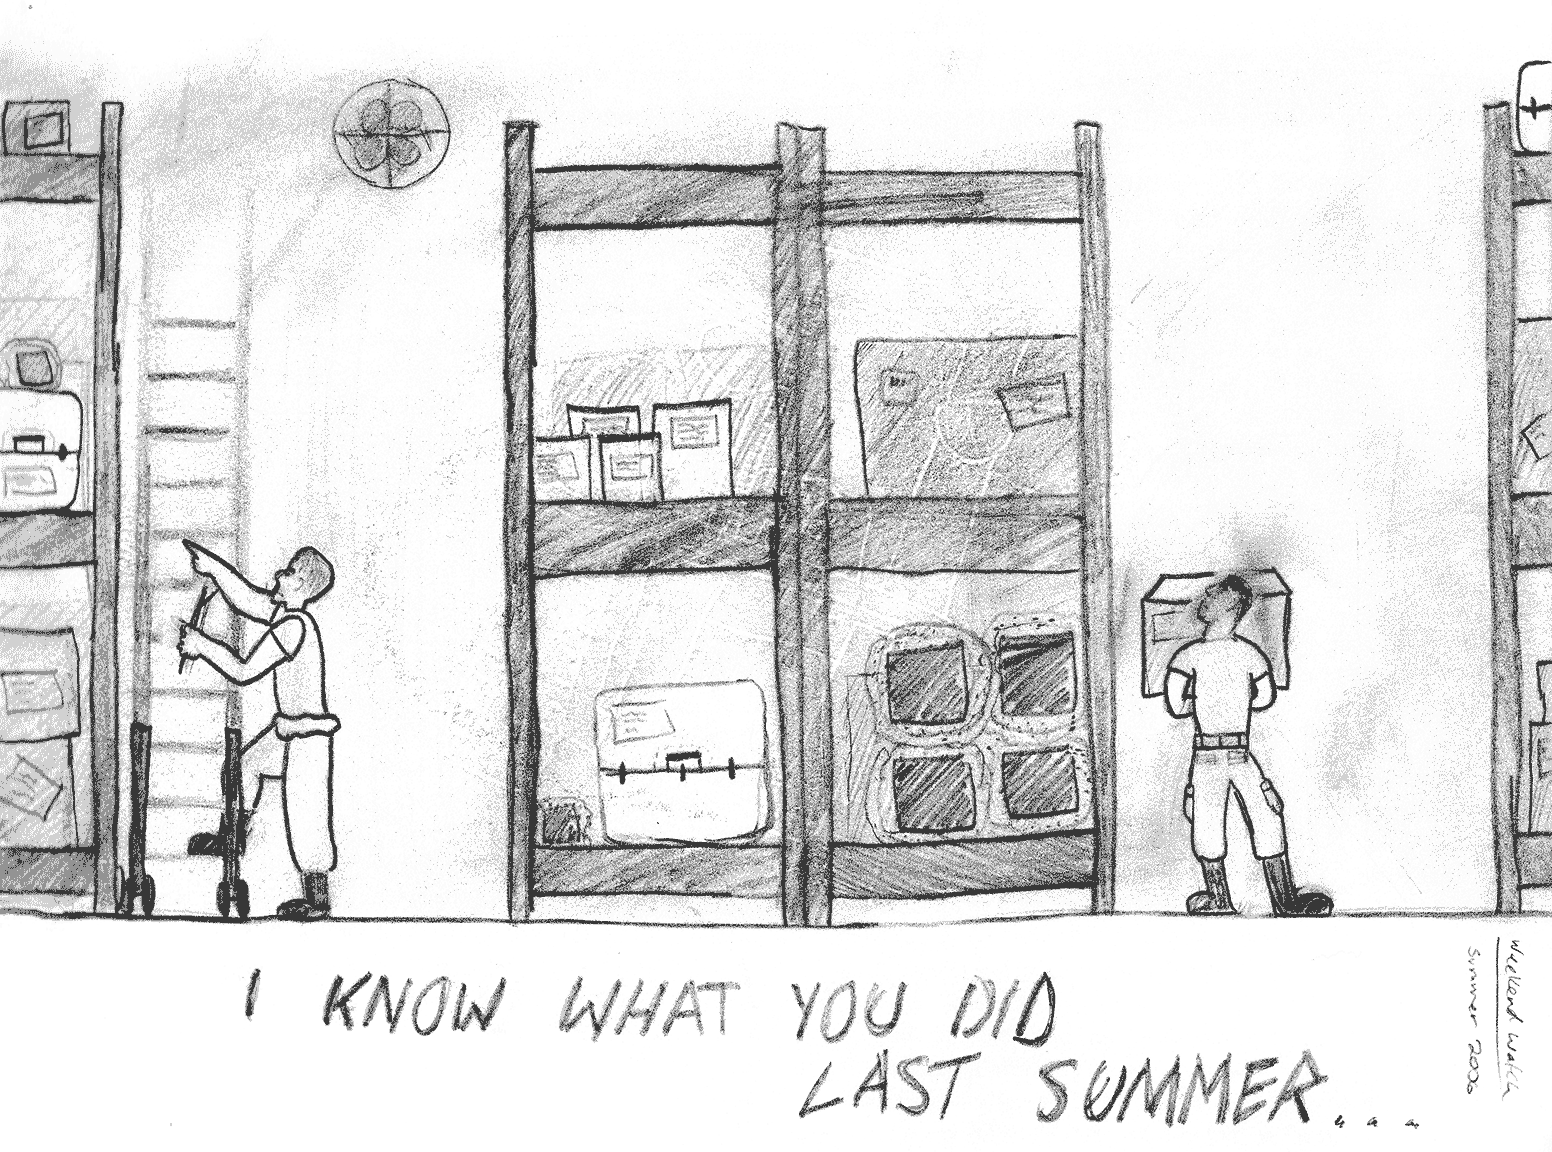 I KNOW WHAT YOU DID
LAST SUMMER...
Weekend Watch
Summer 2006